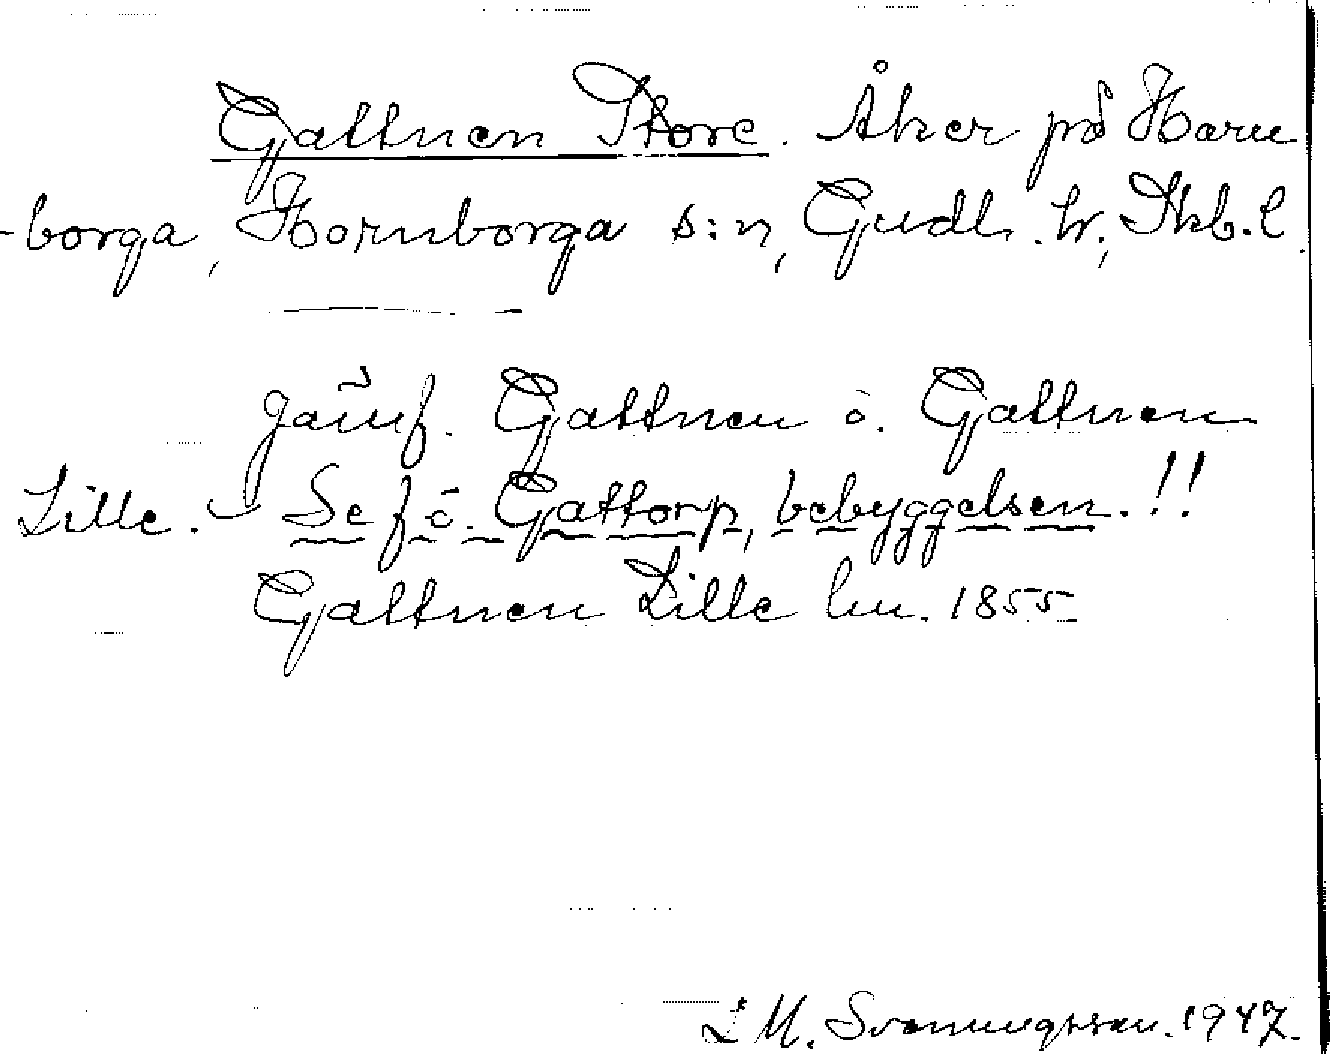 Gattnen Store. Åker på Horn
-borga, Hornborga s:n, Gudh. hr, Skb. l.
Jämf. Gattnen o. Gattnen
Lille. - Se f ö. Gattorp, bebyggelsen.!!
Gattnen Lille hn. 1855
L M. Svenungsson. 1947.